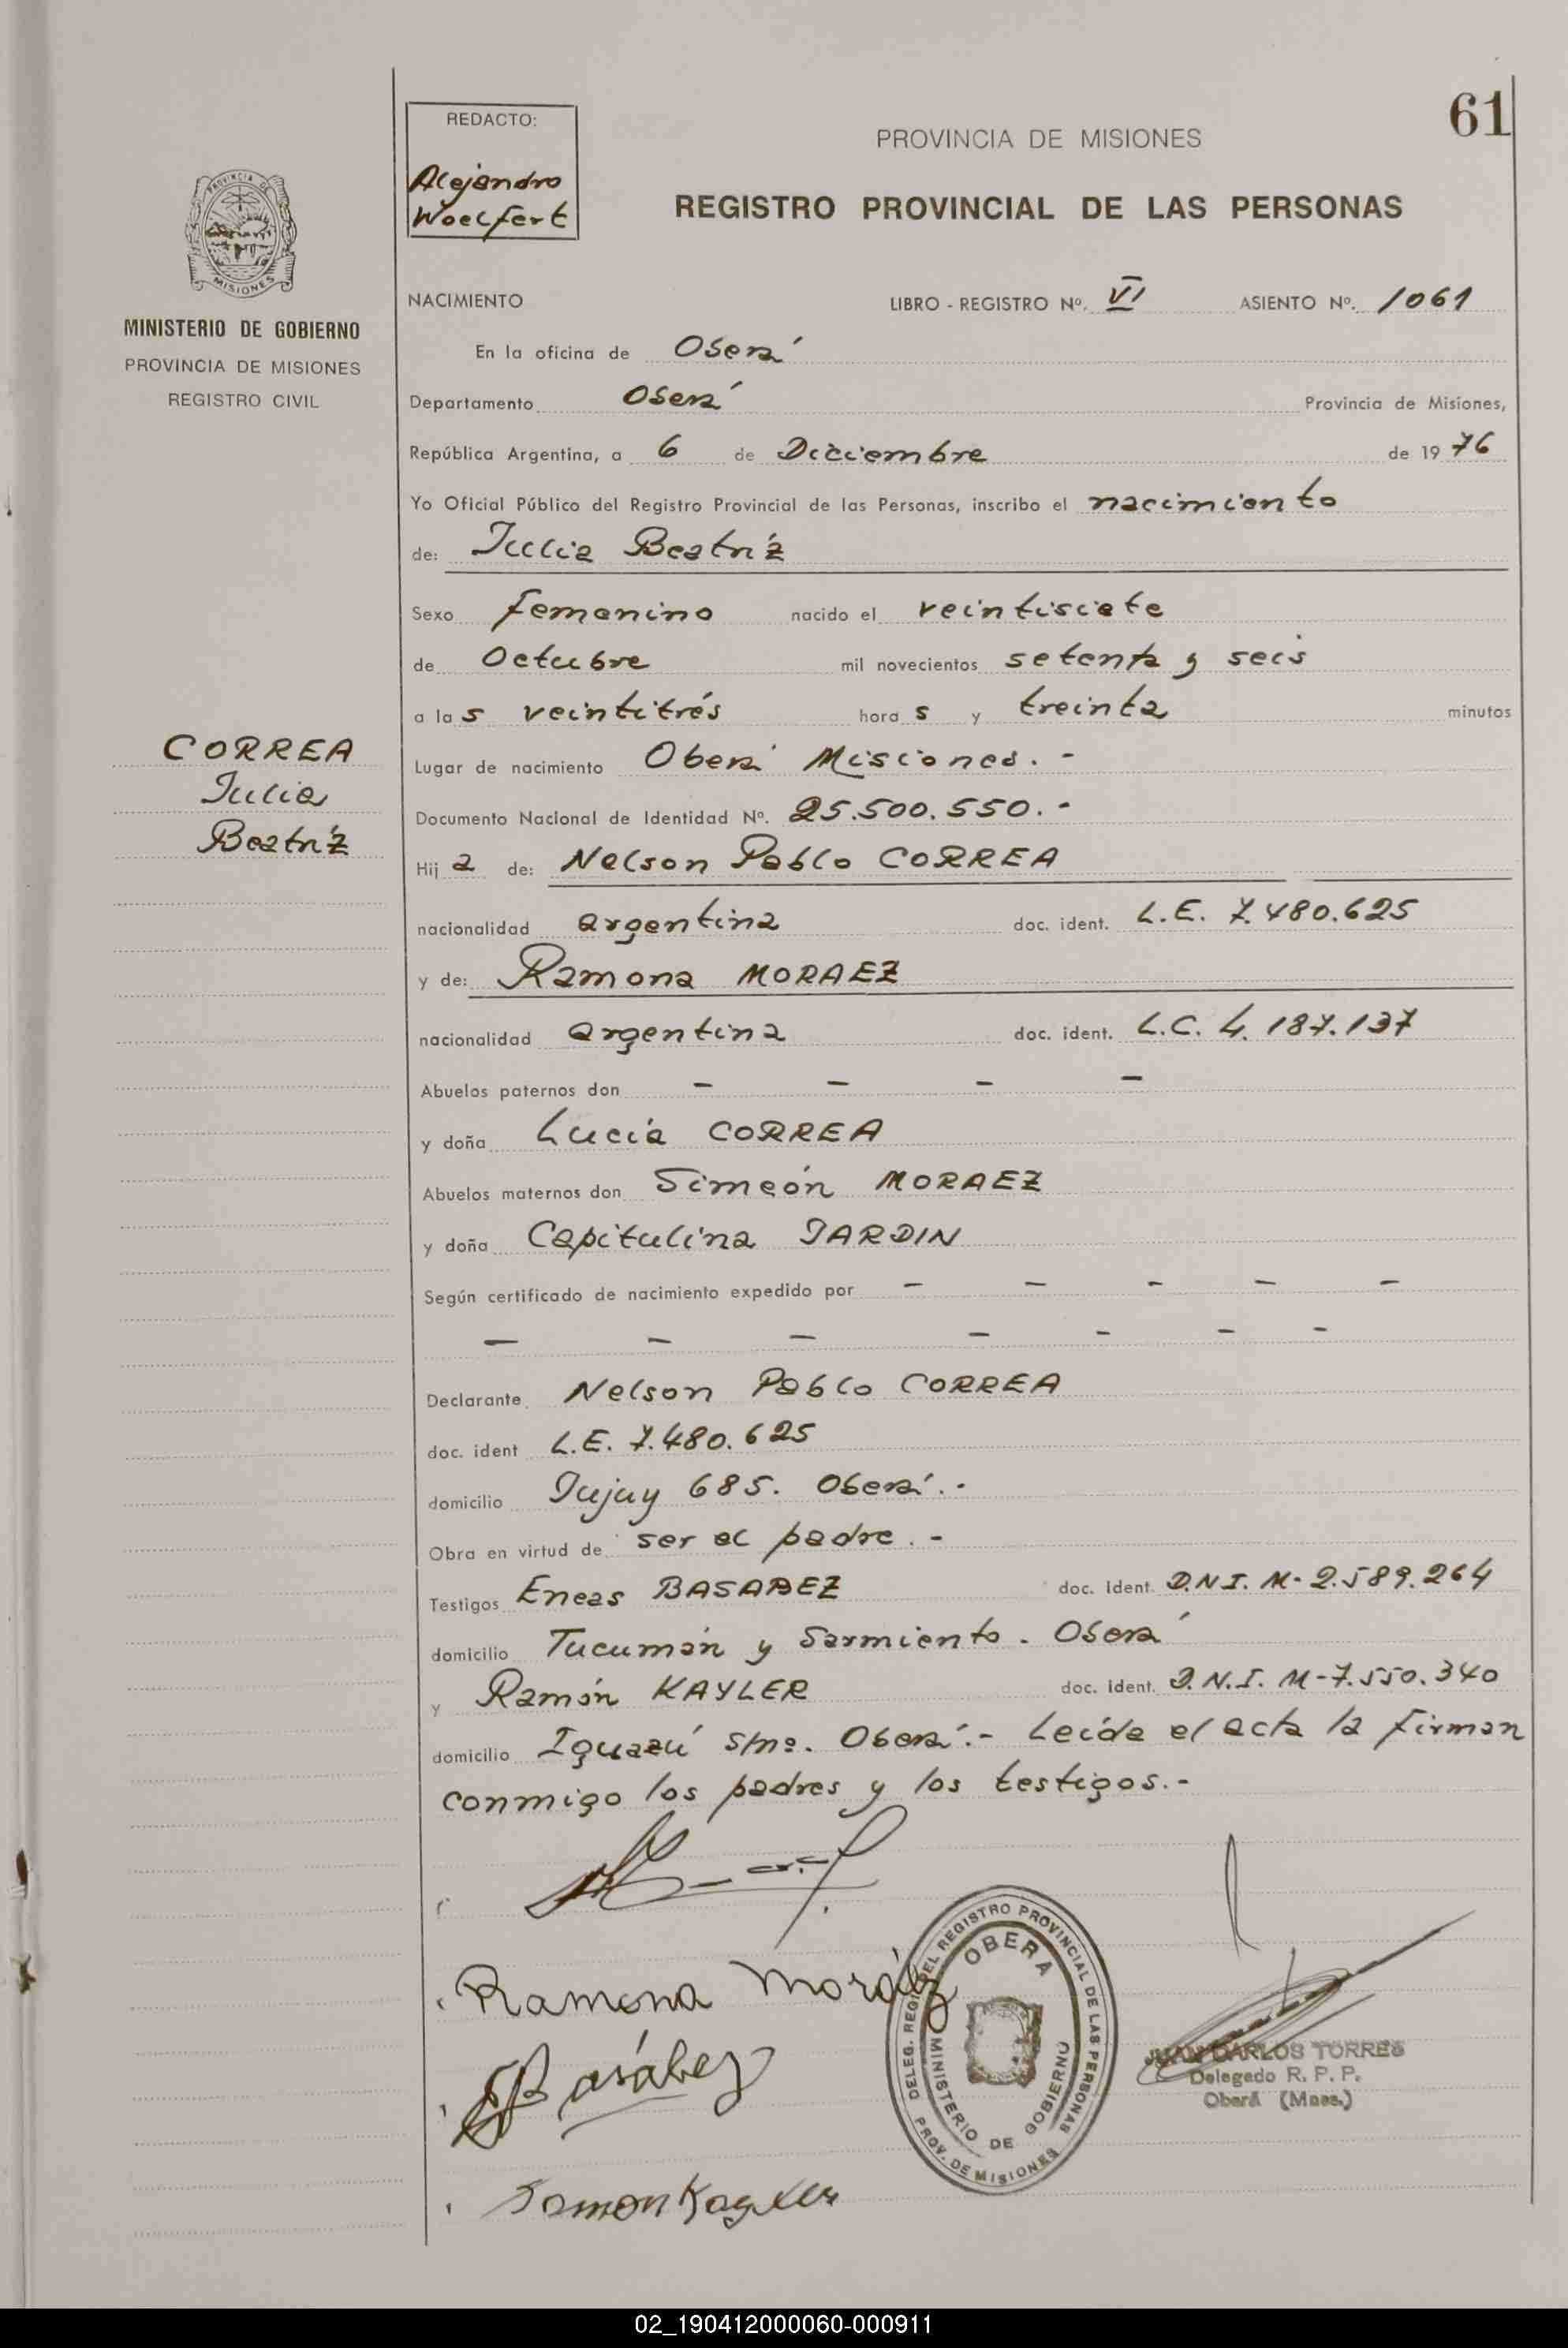 61
REDACTO:
Alejandro
Woelfert
PROVINCIA DE MISIONES
REGISTRO PROVINCIAL DE LAS PERSONAS
PROVINCIA DE
MISIONES
MINISTERIO DE GOBIERNO
PROVINCIA DE MISIONES
REGISTRO CIVIL
NACIMIENTO LIBRO - REGISTRO Nº. VI ASIENTO Nº. 1061
En la oficina de Oberá
Departamento Oberá Provincia de Misiones,
República Argentina, a 6 de Diciembre de 1976
Yo Oficial Público del Registro Provincial de las Personas, inscribo el nacimiento
de: Julia Beatriz
Sexo femenino nacido el veintisiete
de Octubre mil novecientos setenta y seis
a las veintitrés horas y treinta minutos
CORREA
Julia
Beatriz
Lugar de nacimiento Oberá Misiones.-
Documento Nacional de Identidad Nº. 25.500.550.-
Hija de: Nelson Pablo CORREA
nacionalidad argentina doc. ident. L.E. 7.480.625
y de: Ramona MORAEZ
nacionalidad argentina doc. ident. L.C. 4.187.137
Abuelos paternos don - - - -
y doña Lucía CORREA
Abuelos maternos don Simeón MORAEZ
y doña Capitulina JARDIN
Según certificado de nacimiento expedido por - - - - -
- - - - - - -
Declarante Nelson Pablo CORREA
doc. ident L.E. 7.480.625
domicilio Jujuy 685. Oberá.-
Obra en virtud de ser el padre.-
Testigos Eneas BASABEZ doc. Ident. D.N.I. M-2.589.264
domicilio Tucumán y Sarmiento. Oberá
y Ramón KAYLER doc. ident. D.N.I. M-7.550.340
domicilio Iguazú s/nº. Oberá.- Leída el acta la firman
conmigo los padres y los testigos.-
Ramona Moráez
EBasábez
Ramon Kayler
DELEG. REG. DEL REGISTRO PROVINCIAL DE LAS PERSONAS
OBERA
MINISTERIO DE GOBIERNO
PROV. DE MISIONES
JUAN CARLOS TORRES
Delegado R. P. P.
Oberá (Mnes.)
02_190412000060-000911